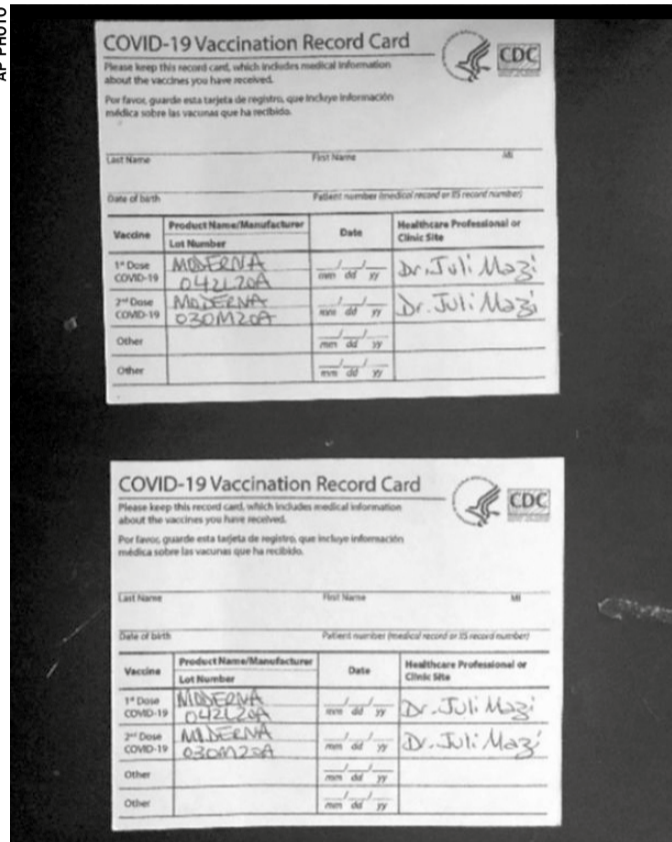 AP PHOTO
COVID-19 Vaccination Record Card
CDC
Please keep this record card, which includes medical information
about the vaccines you have received.
Por favor, guarde esta tarjeta de registro, que incluye información
médica sobre las vacunas que ha recibido.
Last Name First Name MI
Date of birth Patient number (medical record or IIS record number)
Vaccine Product Name/Manufacturer Date Healthcare Professional or
Lot Number Clinic Site
1st Dose MODERNA Dr. Juli Mazi
COVID-19 042L20A mm dd yy
2nd Dose MODERNA Dr. Juli Mazi
COVID-19 030M20A mm dd yy
Other
mm dd yy
Other
mm dd yy
COVID-19 Vaccination Record Card
CDC
Please keep this record card, which includes medical information
about the vaccines you have received.
Por favor, guarde esta tarjeta de registro, que incluye información
médica sobre las vacunas que ha recibido.
Last Name First Name MI
Date of birth Patient number (medical record or IIS record number)
Vaccine Product Name/Manufacturer Date Healthcare Professional or
Lot Number Clinic Site
1st Dose MODERNA Dr. Juli Mazi
COVID-19 042L20A mm dd yy
2nd Dose MODERNA Dr. Juli Mazi
COVID-19 030M20A mm dd yy
Other
mm dd yy
Other
mm dd yy